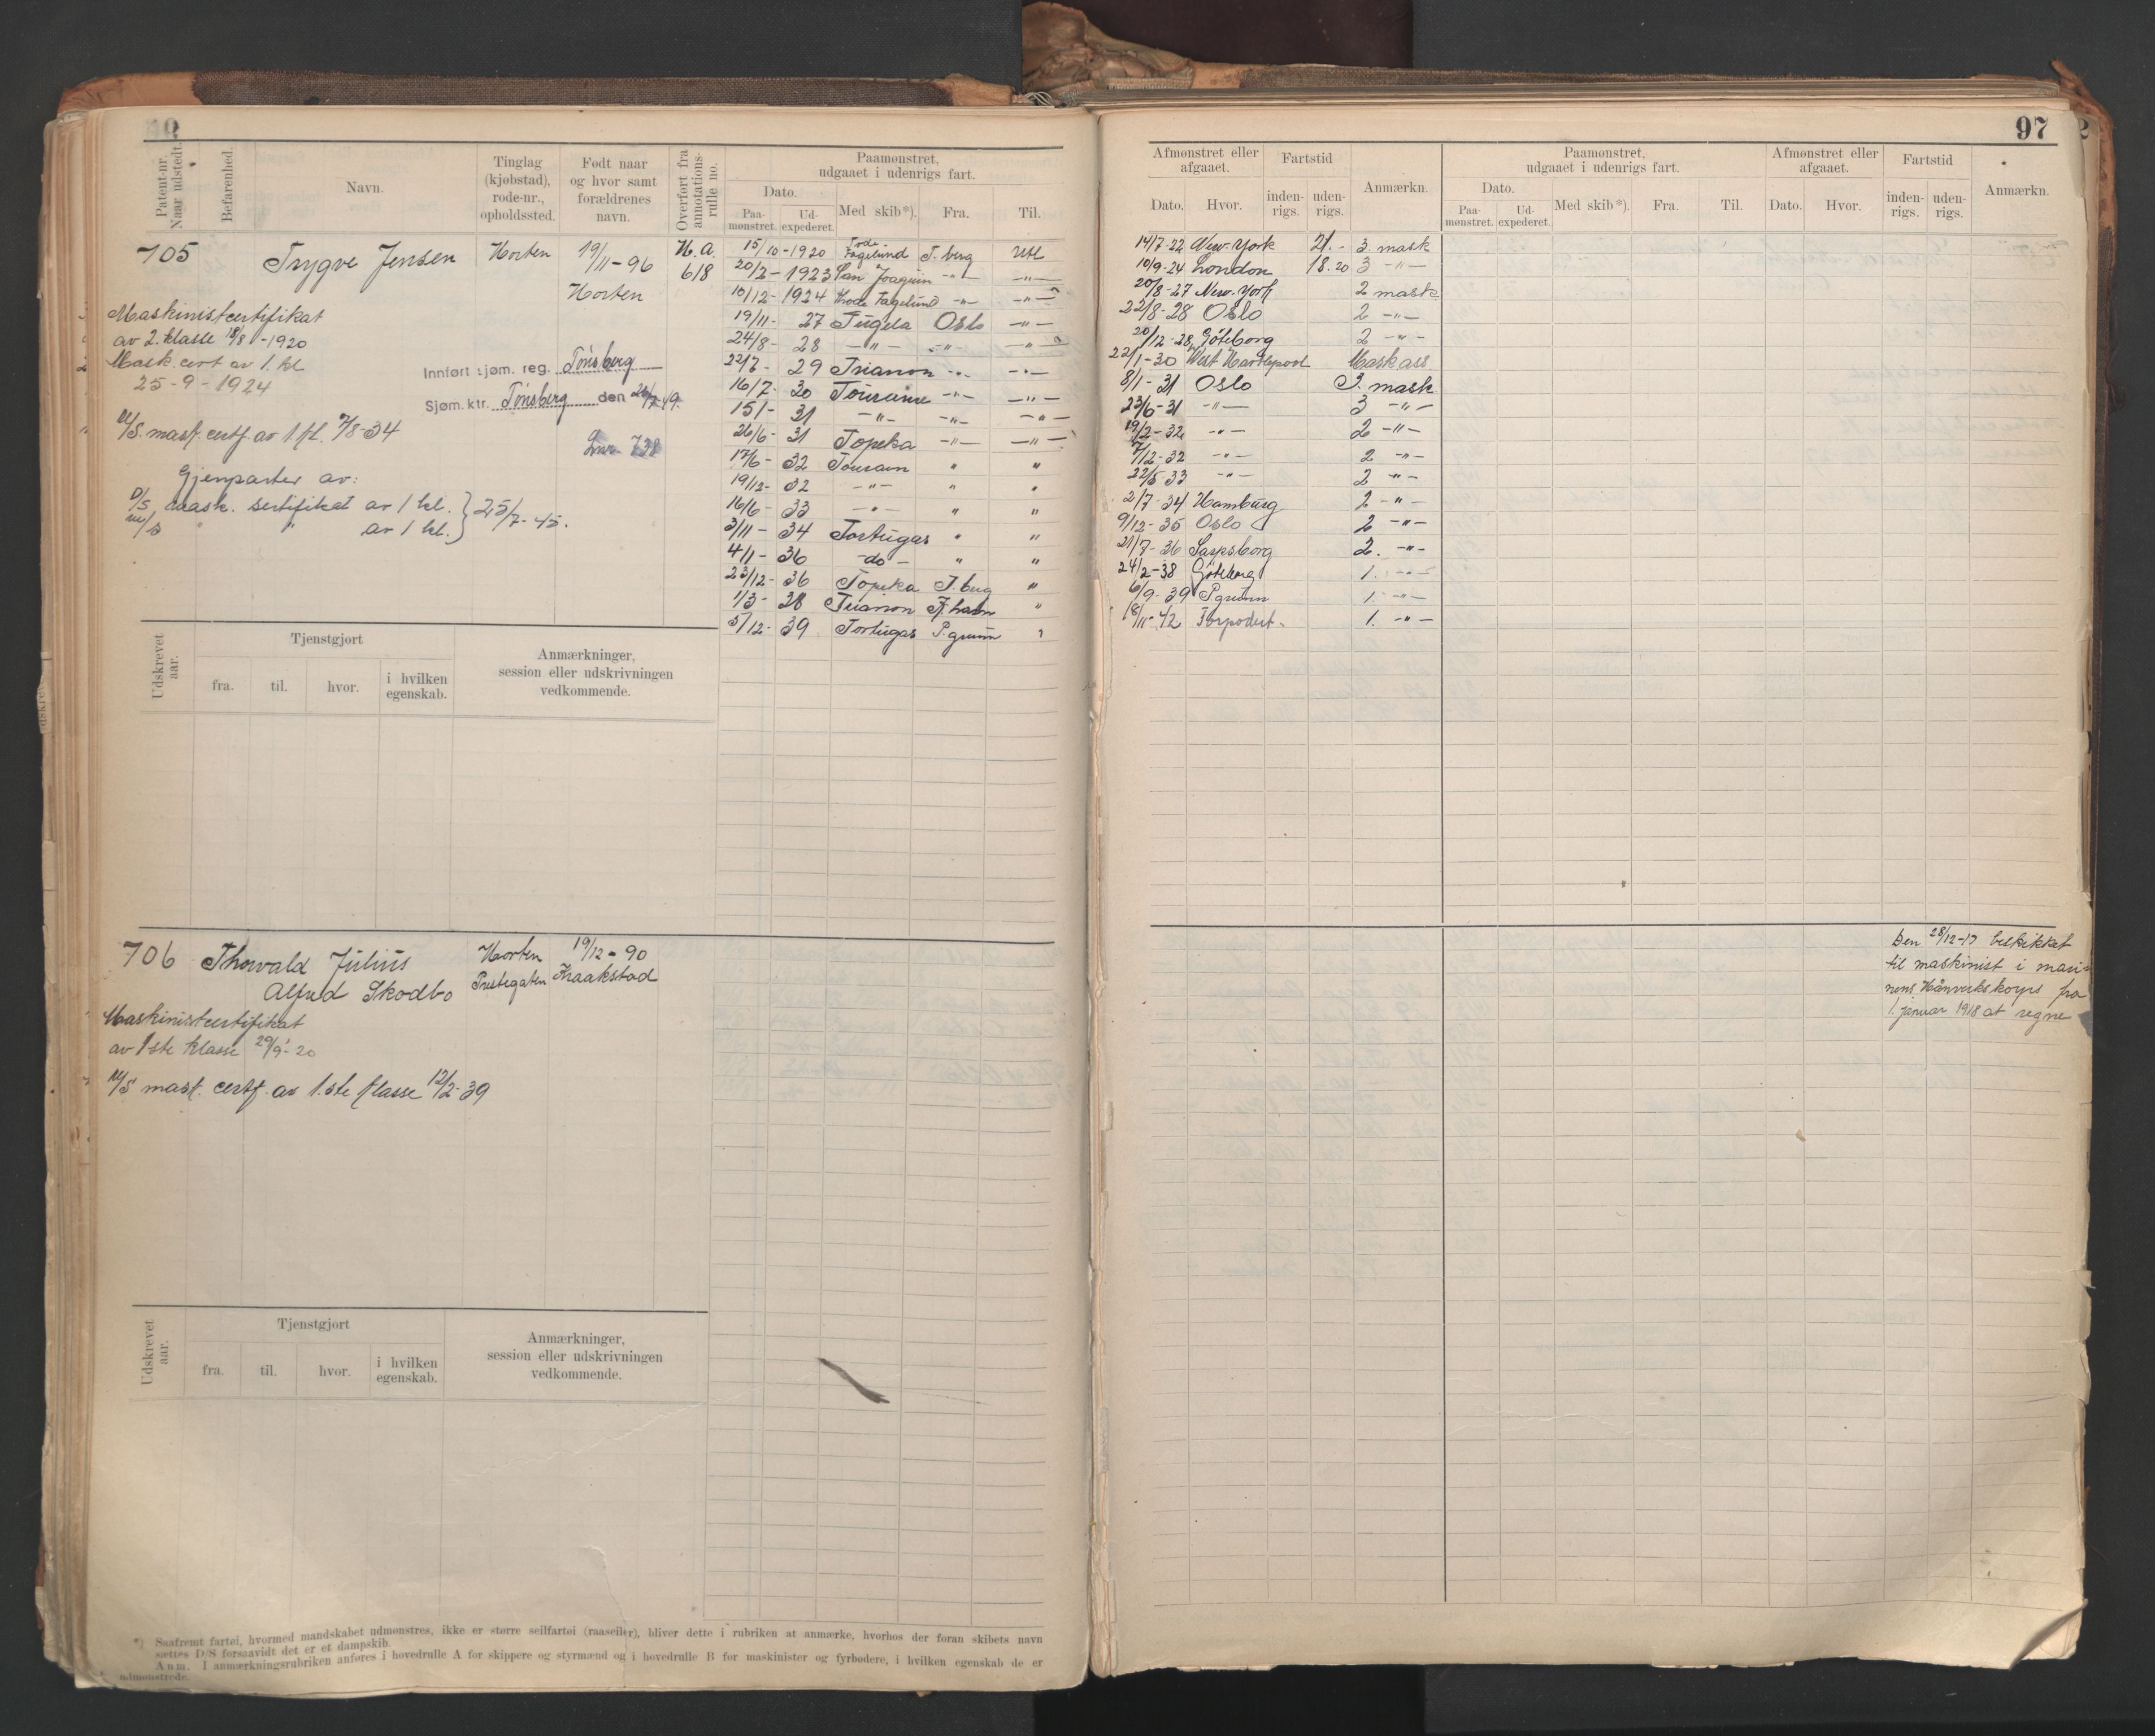 97
Patent-nr. Naar udstedt.
Befarenhed.
Navn.
Tinglag (kjøbstad), rode-nr., opholdssted.
Født naar og hvor samt forældrenes navn.
Overført fra annotations-rulle no.
Paamønstret, udgaaet i udenrigs fart.
Dato.
Paa-mønstret.
Ud-expederet.
Med skib*).
Fra.
Til.
705
Trygve Jensen
Horten
19/11-96
Horten
H.a.
618
Maskinistcertifikat
av 2. klasse 18/8-1920
Mask. cert av 1. kl
25-9-1924
Innført sjøm. reg. Tønsberg
Sjøm. ktr. Tønsberg den
M/S. mask. certf. av 1. kl. 7/8-34
Lnr. 728
Gjenparter av:
D/S mask. sertifikat av 1 kl. } 25/7-45.
M/S " " av 1 kl.
15/10-1920 Fagelund T.berg Utl
20/2-1923 San Joaquin -"- -"-
10/12-1924 Thode Fagelund -"- -"-
19/11-27 Tugela Oslo -"-
24/8-28 -"- -"- -"-
22/7-29 Trianon -"- -"-
16/7-30 Touraine -"- -"-
15/1-31 -"- -"- -"-
26/6-31 Topeka -"- -"-
17/6-32 Tourain " "
19/12-32 -"- " "
16/6-33 -"- " "
3/11-34 Tortugas " "
4/1-36 -do- " "
23/12-36 Topeka T.berg "
1/3-38 Trianon "
5/12-39 Tortugas P.grunn "
Udskrevet aar.
Tjenstgjort
fra.
til.
hvor.
i hvilken egenskab.
Anmærkninger, session eller udskrivningen vedkommende.
706
Thorvald Julius
Alfred Skodbo
Horten
Prestegaten
19/12-90
Kraakstad
Maskinistcertifikat
av 1ste klasse 29/9-20
M/S mask. certf. av 1.ste klasse 12/2-39
Udskrevet aar.
Tjenstgjort
fra.
til.
hvor.
i hvilken egenskab.
Anmærkninger, session eller udskrivningen vedkommende.
*) Saafremt fartøi, hvormed mandskabet udmønstres, ikke er større seilfartøi (raaseiler), bliver dette i rubriken at anmærke, hvorhos der foran skibets navn
sættes D/S forsaavidt det er et dampskib.
Anm. I anmærkningsrubriken anføres i hovedrulle A for skippere og styrmænd og i hovedrulle B for maskinister og fyrbødere, i hvilken egenskab de er
udmønstrede.
Afmønstret eller afgaaet.
Fartstid
Dato.
Hvor.
inden-rigs.
uden-rigs.
Anmærkn.
Paamønstret, udgaaet i udenrigs fart.
Dato.
Paa-mønstret.
Ud-expederet.
Med skib*).
Fra.
Til.
Afmønstret eller afgaaet.
Dato.
Hvor.
Fartstid
inden-rigs.
uden-rigs.
Anmærkn.
14/7-22 New-York 21.- 3. mask
10/9-24 London 18.20 3 -"-
20/8-27 New-York 2 mask
22/8-28 Oslo 2 -"-
20/12-28 Göteborg 2 -"-
22/1-30 West Hartlepool Mask ass.
8/1-31 Oslo 3. mask
23/6-31 -"- 3 -"-
19/2-32 -"- 2 -"-
7/12-32 -"- 2 -"-
22/5-33 -"- 2 -"-
2/7-34 Hamburg 2 -"-
9/12-35 Oslo 2 -"-
21/7-36 Sarpsborg 2. -"-
24/2-38 Göteborg 1. -"-
6/9-39 P.grunn 1. -"-
18/11-42 Torpedert. 1. -"-
Den 28/12-17 beskikket
til maskinist i mari-
nens Haanverkskorps fra
1. januar 1918 at regne